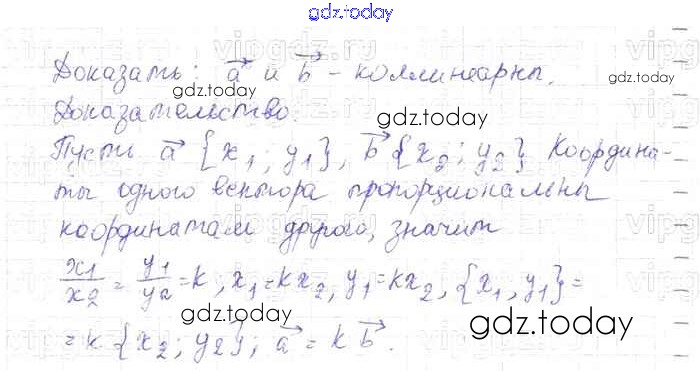 gdz.today
Доказать: a⃗ и b⃗ - коллинеарны.
gdz.today
Доказательство.
gdz.today
Пусть a⃗ {x₁; y₁}, b⃗ {x₂; y₂} Координа-
ты одного вектора пропорциональны
координатам другого, значит
x₁/x₂ = y₁/y₂ = k; x₁=kx₂, y₁=kx₂, {x₁, y₁}=
= k {x₂; y₂}; a⃗ = k b⃗.
gdz.today
gdz.today